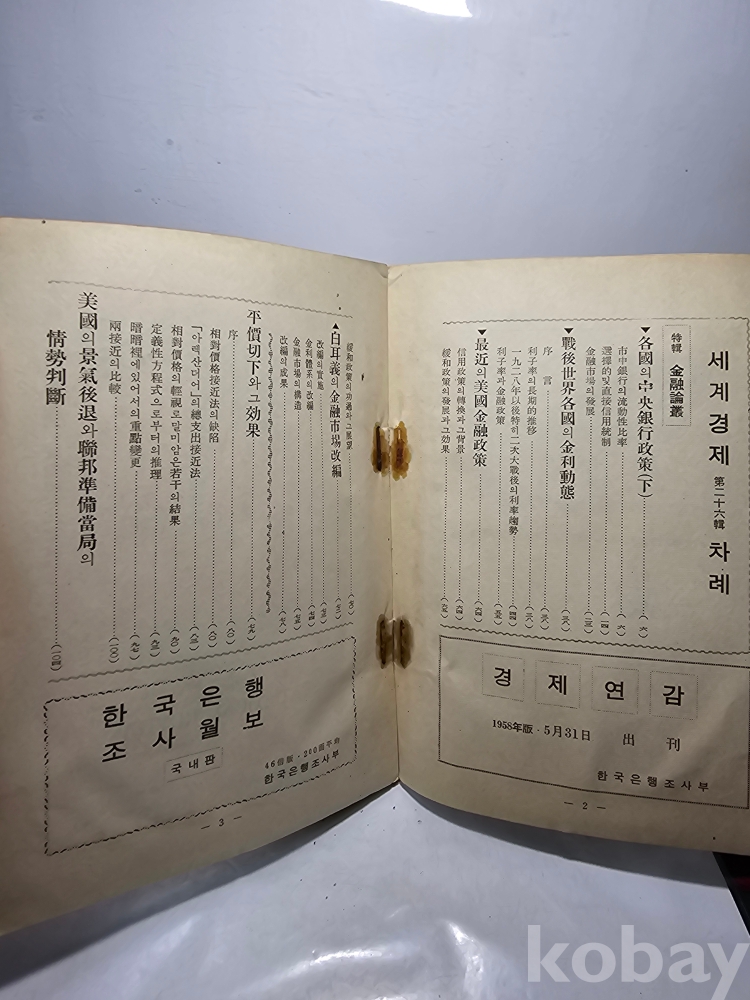 세계경제 第二十六輯 차례
特輯 金融論叢
▼各國의 中央銀行政策(下)………(六)
市中銀行의 流動性比率………(六)
選擇的 및 直接信用統制………(一四)
金融市場의 發展………(二三)
▼戰後世界各國의 金利動態………(三八)
序 言………(三八)
利子率의 長期的推移………(三八)
一九二八年以後特히 二次大戰後의 利率趨勢………(四四)
利子率과 金融政策………(五三)
▼最近의 美國金融政策………(六四)
信用政策의 轉換과 그 背景………(六四)
緩和政策의 發展과 그 效果………(六五)
경제연감
1958年版·5月31日 出刊
한국은행조사부
— 2 —
緩和政策의 功過와 그 展望………(七〇)
▲白耳義의 金融市場改編………(七二)
改編의 實施
金利體系의 改編………(七四)
金融市場의 構造………(七五)
改編의 成果………(七八)
平價切下와 그 效果………(七九)
序………(八〇)
相對價格接近法의 缺陷………(八〇)
「아렉산더어」의 總支出接近法………(八三)
相對價格의 輕視로 말미암은 若干의 結果………(九〇)
定義性方程式으로부터의 推理………(九三)
暗暗裡에 있어서의 重點變更………(九七)
兩接近의 比較………(一〇〇)
美國의 景氣後退와 聯邦準備當局의
情勢判斷………(一〇四)
한국은행
조사월보
국내판
46倍版·200面平均
한국은행조사부
— 3 —
kobay